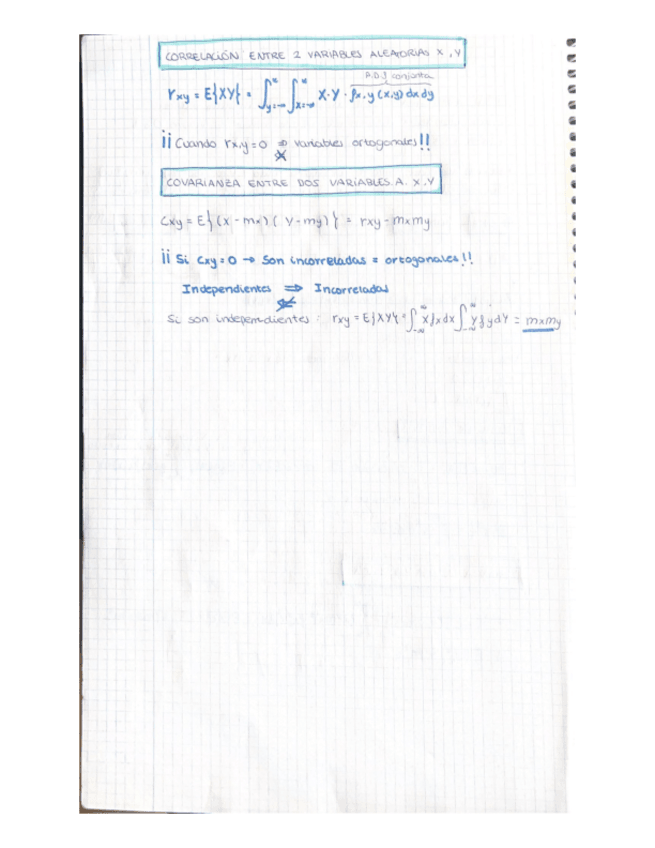 CORRELACIÓN ENTRE 2 VARIABLES ALEATORIAS X, Y
conjunta
rxy = E{XY} = ∫_{y=-∞}^{∞} ∫_{x=-∞}^{∞} X·Y · fx,y (x,y) dx dy
¡¡ Cuando rx,y = 0 ⇒ variables ortogonales !!
COVARIANZA ENTRE DOS VARIABLES A. X, Y
Cxy = E{(X - mx)(Y - my)} = rxy - mxmy
¡¡ Si Cxy = 0 → Son incorreladas = ortogonales !!
Independientes ⇒ Incorreladas
⇍
Si son independientes: rxy = E{XY} = ∫_{-∞}^{∞} x fx dx ∫_{-∞}^{∞} y fy dy = mxmy